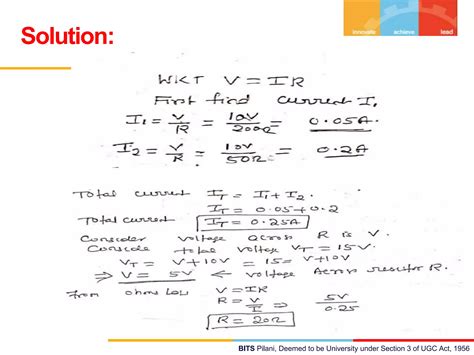 Solution:
innovate achieve lead
WKT V = IR
First find current I,
I1 = V/R = 10V/200Ω = 0.05A
I2 = V/R = 10V/50Ω = 0.2A
Total current IT = I1 + I2.
IT = 0.05 + 0.2
Total current IT = 0.25A
Consider voltage across R is V.
total voltage VT = 15V.
VT = V + 10V = 15 = V + 10V
⇒ V = 5V ← voltage Across resistor R.
From ohms law V = IR
R = V/I = 5V/0.25
R = 20Ω
BITS Pilani, Deemed to be University under Section 3 of UGC Act, 1956